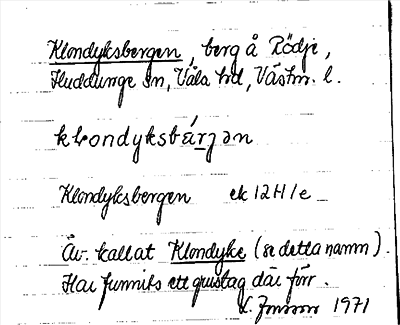 Klondyksbergen, berg å Rödje,
Huddunge sn, Våla hd, Västm. l.
klondyksbárjən
Klondyksbergen ek 12H1e
Äv. kallat Klondyke (se detta namn).
Har funnits ett grustag där förr.
1971